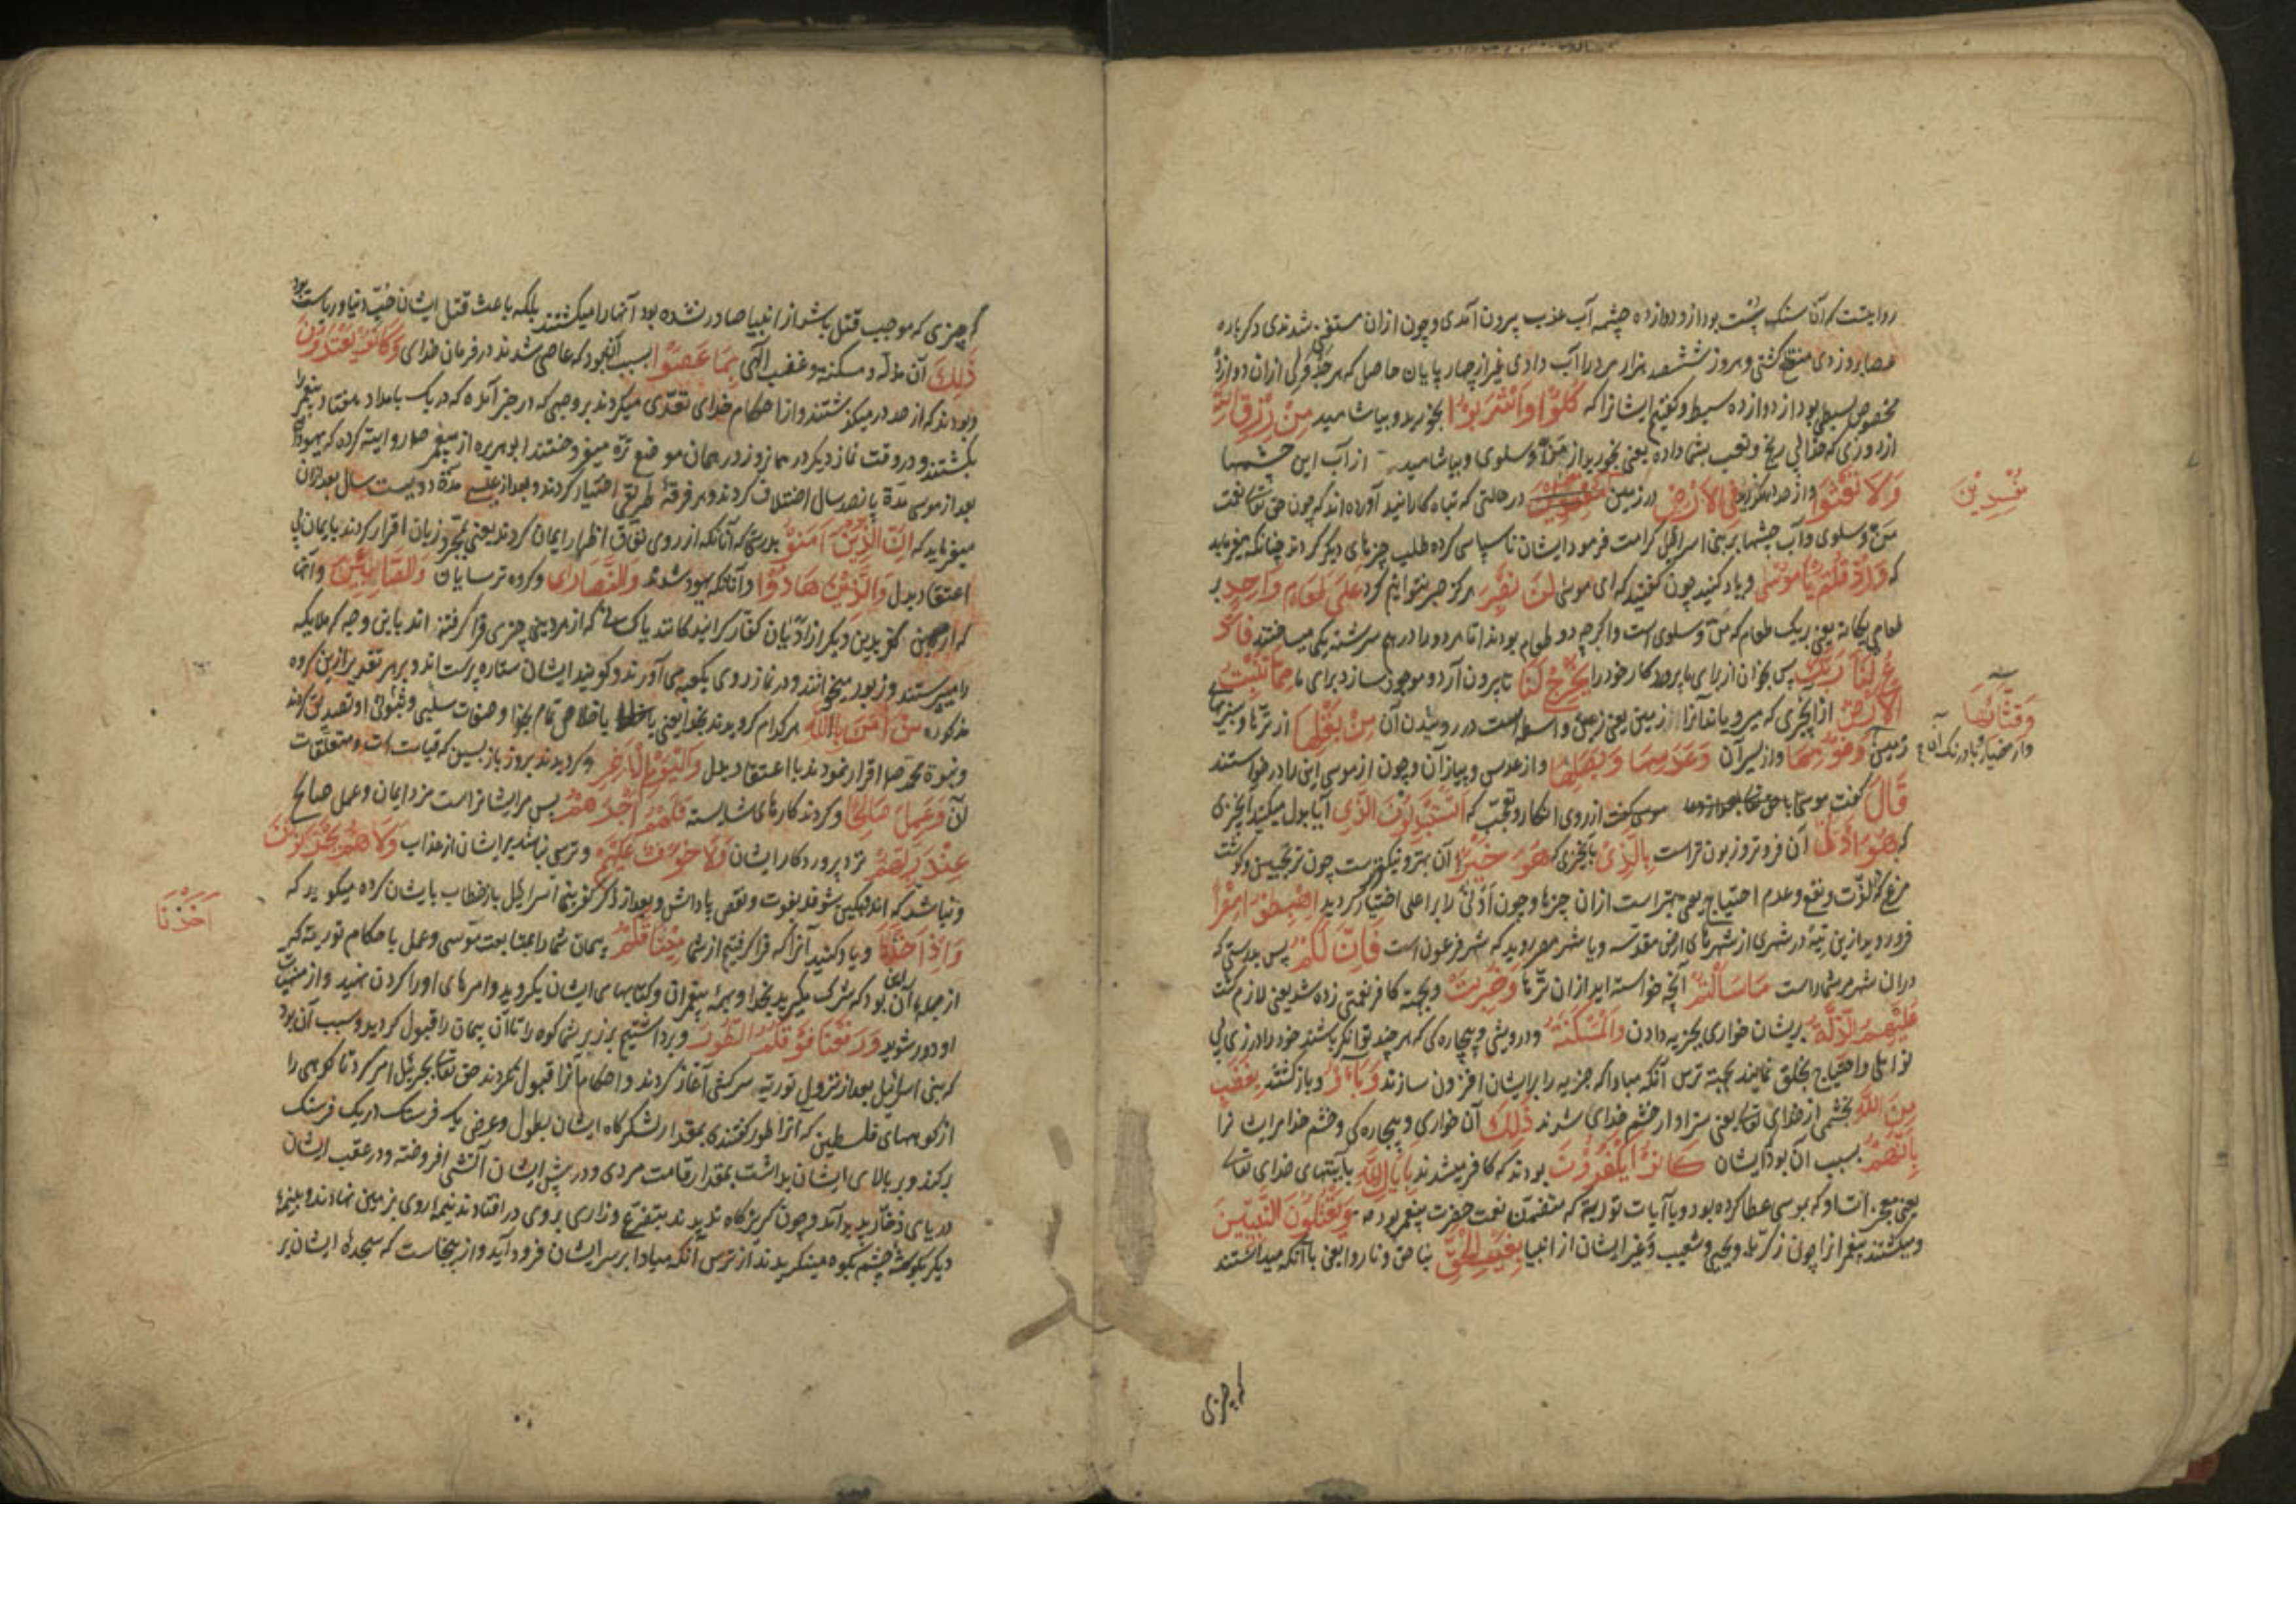 روایتست که آن سنک پشت بود از و دوازده چشمه آب عذب بیرون آمدی و چون ازان مستغنی شدندی دکرباره
عصا برو زدی منقطع کشتی و هر روز ششصد هزار مرد را آب دادی غیر از چهارپایان حاصل که هر ازان دوازده
مخصوص بسبطی بود از دوازده سبط و کفتیم ایشانرا که کُلُوْا وَاشْرَبُوْا بخورید و بیاشامید مِنْ رِزْقِ اللّهِ
از روزی که خدا بی رنج و تعب بشما داده یعنی بخورید از مَنّ و سلوی و بیاشامید از آب این چشمها
وَلَا تَعْثَوْا و از حد مکذرید فِی الْاَرْضِ در زمین در حالتی که تباه کارانید آورده اند که چون حق تعالی نعمت
مُفْسِدِیْنَ
منّ و سلوی و آب چشمها بر بنی اسرائیل کرامت فرمود ایشان ناسپاسی کرده طلب چیزهای دیکر کردند چنانکه میفرماید
که وَاِذْ قُلْتُمْ یَا مُوْسٰی و یاد کنید چون کفتید که ای موسی لَنْ نَصْبِرَ هرکز صبر نتوانیم کرد عَلٰی طَعَامٍ وَاحِدٍ بر
طعام یکانه یعنی بریک طعام که منّ و سلوی است و اکرچه دو طعام بودند اما هر دو را درهم سرشته یکی میساختند فَادْ
عُ لَنَا رَبَّکَ پس بخوان از برای ما پروردکار خود را یُخْرِجْ لَنَا تا بیرون آرد و موجود سازد برای ما مِمَّا تُنْبِتُ
الْاَرْضُ ازانچیزی که میرویاند آنرا زمین یعنی زمین واسطه است در روئیدن آن مِنْ بَقْلِهَا از ترّها و سبزیهای
وَقِثَّائِهَا
زمین وَفُوْمِهَا و از سیر آن وَعَدَسِهَا وَبَصَلِهَا و از عدس و پیاز آن و چون از موسی این را درخواستند
و از خیار و بادرنک آن
قَالَ کفت موسی از روی انکار و تعجّب که اَتَسْتَبْدِلُوْنَ الَّذِیْ آیا بدل میکنید آنچیزی
که هُوَ اَدْنٰی آن فروتر و زبون تراست بِالَّذِیْ بآنچیزی که هُوَ خَیْرٌ آن بهتر و نیکوترست چون ترنجبین و کوشت
مرغ که لذّت و نفع و عدم احتیاج بهتر است ازان چیزها و چون اَدْنٰی را بر اعلی اختیار کردید اِهْبِطُوْا مِصْرًا
فرود روید ازین تیه در شهری از شهرهای ارض مقدّسه و یا شهر مصر روید که شهر فرعون است فَاِنَّ لَکُمْ پس بدرستی که
دران شهر مر شماراست مَا سَاَلْتُمْ آنچه خواسته اید ازان ترّها وَضُرِبَتْ و بجهة کافر نعمتی زده شد یعنی لازم کشت
عَلَیْهِمُ الذِّلَّةُ بریشان خواری بجزیه دادن وَالْمَسْکَنَةُ و درویشی و بیچاره کی که هر چند توانکر باشند خود را در زی بی
نوایان و احتیاج بخلق نمایند بجهة ترس آنکه مبادا که جزیه را بر ایشان افزون سازند وَبَاؤُ و بازکشتند بِغَضَبٍ
مِنَ اللّهِ بخشمی از خدای تعالی یعنی سزاوار خشم خدای شدند ذٰلِکَ آن خواری و بیچاره کی و خشم خدا مر ایشانرا
بِاَنَّهُمْ بسبب آن بود که ایشان کَانُوْا یَکْفُرُوْنَ بودند که کافر میشدند بِاٰیٰاتِ اللّهِ بآیتهای خدای تعالی
یعنی معجزات او که بموسی عطا کرده بود و یا آیات توریة که متضمّن نعت حضرت پیغمبر بود ص وَیَقْتُلُوْنَ النَّبِیِّیْنَ
و میکشتند پیغمبرانرا چون زکریّا و یحیی و شعیب و غیر ایشان از انبیا بِغَیْرِ الْحَقِّ بناحق و ناروا یعنی باآنکه میدانستند
که چیزی
که چیزی که موجب قتل باشد از انبیا صادر نشده بود آنها را میکشتند بلکه باعث قتل ایشان حبّ دنیا و ریاست بود
ذٰلِکَ آن مذلّه و مسکنة و غضب الٰهی بِمَا عَصَوْا بسبب آن بود که عاصی شدند در فرمان خدای وَکَانُوْا یَعْتَدُوْنَ
و بودند که از حد در میکذشتند و از احکام خدای تعدّی میکردند بر وجهی که در خبر آمده که در یک بامداد هفتاد پیغمبر را
بکشتند و در وقت نماز دیکر در همان روز در همان موضع ترّه میفروختند ابوهریره از پیغمبر ص روایة کرده که یهود
بعد از موسی مدّة پانصد سال اختلاف کردند و هر فرقهٔ طریقی اختیار کردند و بعد از عیسی مدّة دویست سال بعد ازان
میفرماید که اِنَّ الَّذِیْنَ اٰمَنُوْا بدرستی که آنانکه از روی نفاق اظهار ایمان کردند یعنی بمجرّد زبان اقرار کردند بایمان بی
اعتقاد بدل وَالَّذِیْنَ هَادُوْا و آنانکه یهود شدند وَالنَّصَارٰی و کروه ترسایان وَالصَّابِئِیْنَ و آنها
که از دین بدین دیکر از ادیان کفار کرائیدکانند یا کسانی که از هر دینی چیزی فرا کرفته اند باین وجه که ملایکه
را میپرستند و زبور میخوانند و در نماز روی بکعبه می آورند و کویند ایشان ستاره پرست اند و بر هر تقدیر ازین کروه
مذکوره مَنْ اٰمَنَ بِاللّهِ هر کدام کرویدند بخدا یعنی باخلاص تمام بخدا و صفات سلبی و ثبوتی او تصدیق کردند
و بنبوّة محمّد ص اقرار نمودند با اعتقاد بدل وَالْیَوْمِ الْاٰخِرِ و کرویدند بروز بازپسین که قیامت است و متعلّقات
آن وَعَمِلَ صَالِحًا و کردند کارهای شایسته فَلَهُمْ اَجْرُهُمْ پس مر ایشانراست مزد ایمان و عمل صالح
عِنْدَ رَبِّهِمْ نزد پروردکار ایشان وَلَا خَوْفٌ عَلَیْهِمْ و ترسی نباشد بر ایشان از عذاب وَلَا هُمْ یَحْزَنُوْنَ
و نباشد که اندوهکین شوند بفوت و نقص پاداش و بعد از ذکر کفر بنی اسرائیل باز خطاب بایشان کرده میکوید که
وَاِذْ اَخَذْنَا و یاد کنید آنرا که فرا کرفتیم از شما مِیْثَاقَکُمْ پیمان شما را بمتابعت موسی و عمل باحکام توریة که
اَخَذْنَا
از جمله آن بود که شرک میکرید بخدا و بهمهٔ پیغمبران و کتابهای ایشان بکروید و امرهای او را کردن نهید و از منهیات
او دور شوید وَرَفَعْنَا فَوْقَکُمُ الطُّوْرَ و برداشتیم بر زبر شما کوه را تا آن پیمان را قبول کردید و سبب آن بود
که بنی اسرائیل بعد از نزول توریة سرکشی آغاز کردند و احکام آنرا قبول نکردند حق تعالی بجبرئیل امر کرد تا کوهی را
از کوههای فلسطین که آنرا طور کفتندی بمقدار لشکرکاه ایشان بطول و عرض یک فرسنک در یک فرسنک
برکند و بر بالای ایشان بداشت بمقدار قامت مردی و در پیش ایشان آتشی افروخته و در عقب ایشان
دریای ذخّار پدید آمد و چون کریزکاه ندیدند بتضرّع و زاری بروی در افتادند نیمهٔ روی بر زمین نهادند و بنیمهٔ
دیکر بکوشهٔ چشم بکوه مینکریدند از ترس آنکه مبادا بر سر ایشان فرود آید و ازینجاست که سجدهٔ ایشان بر